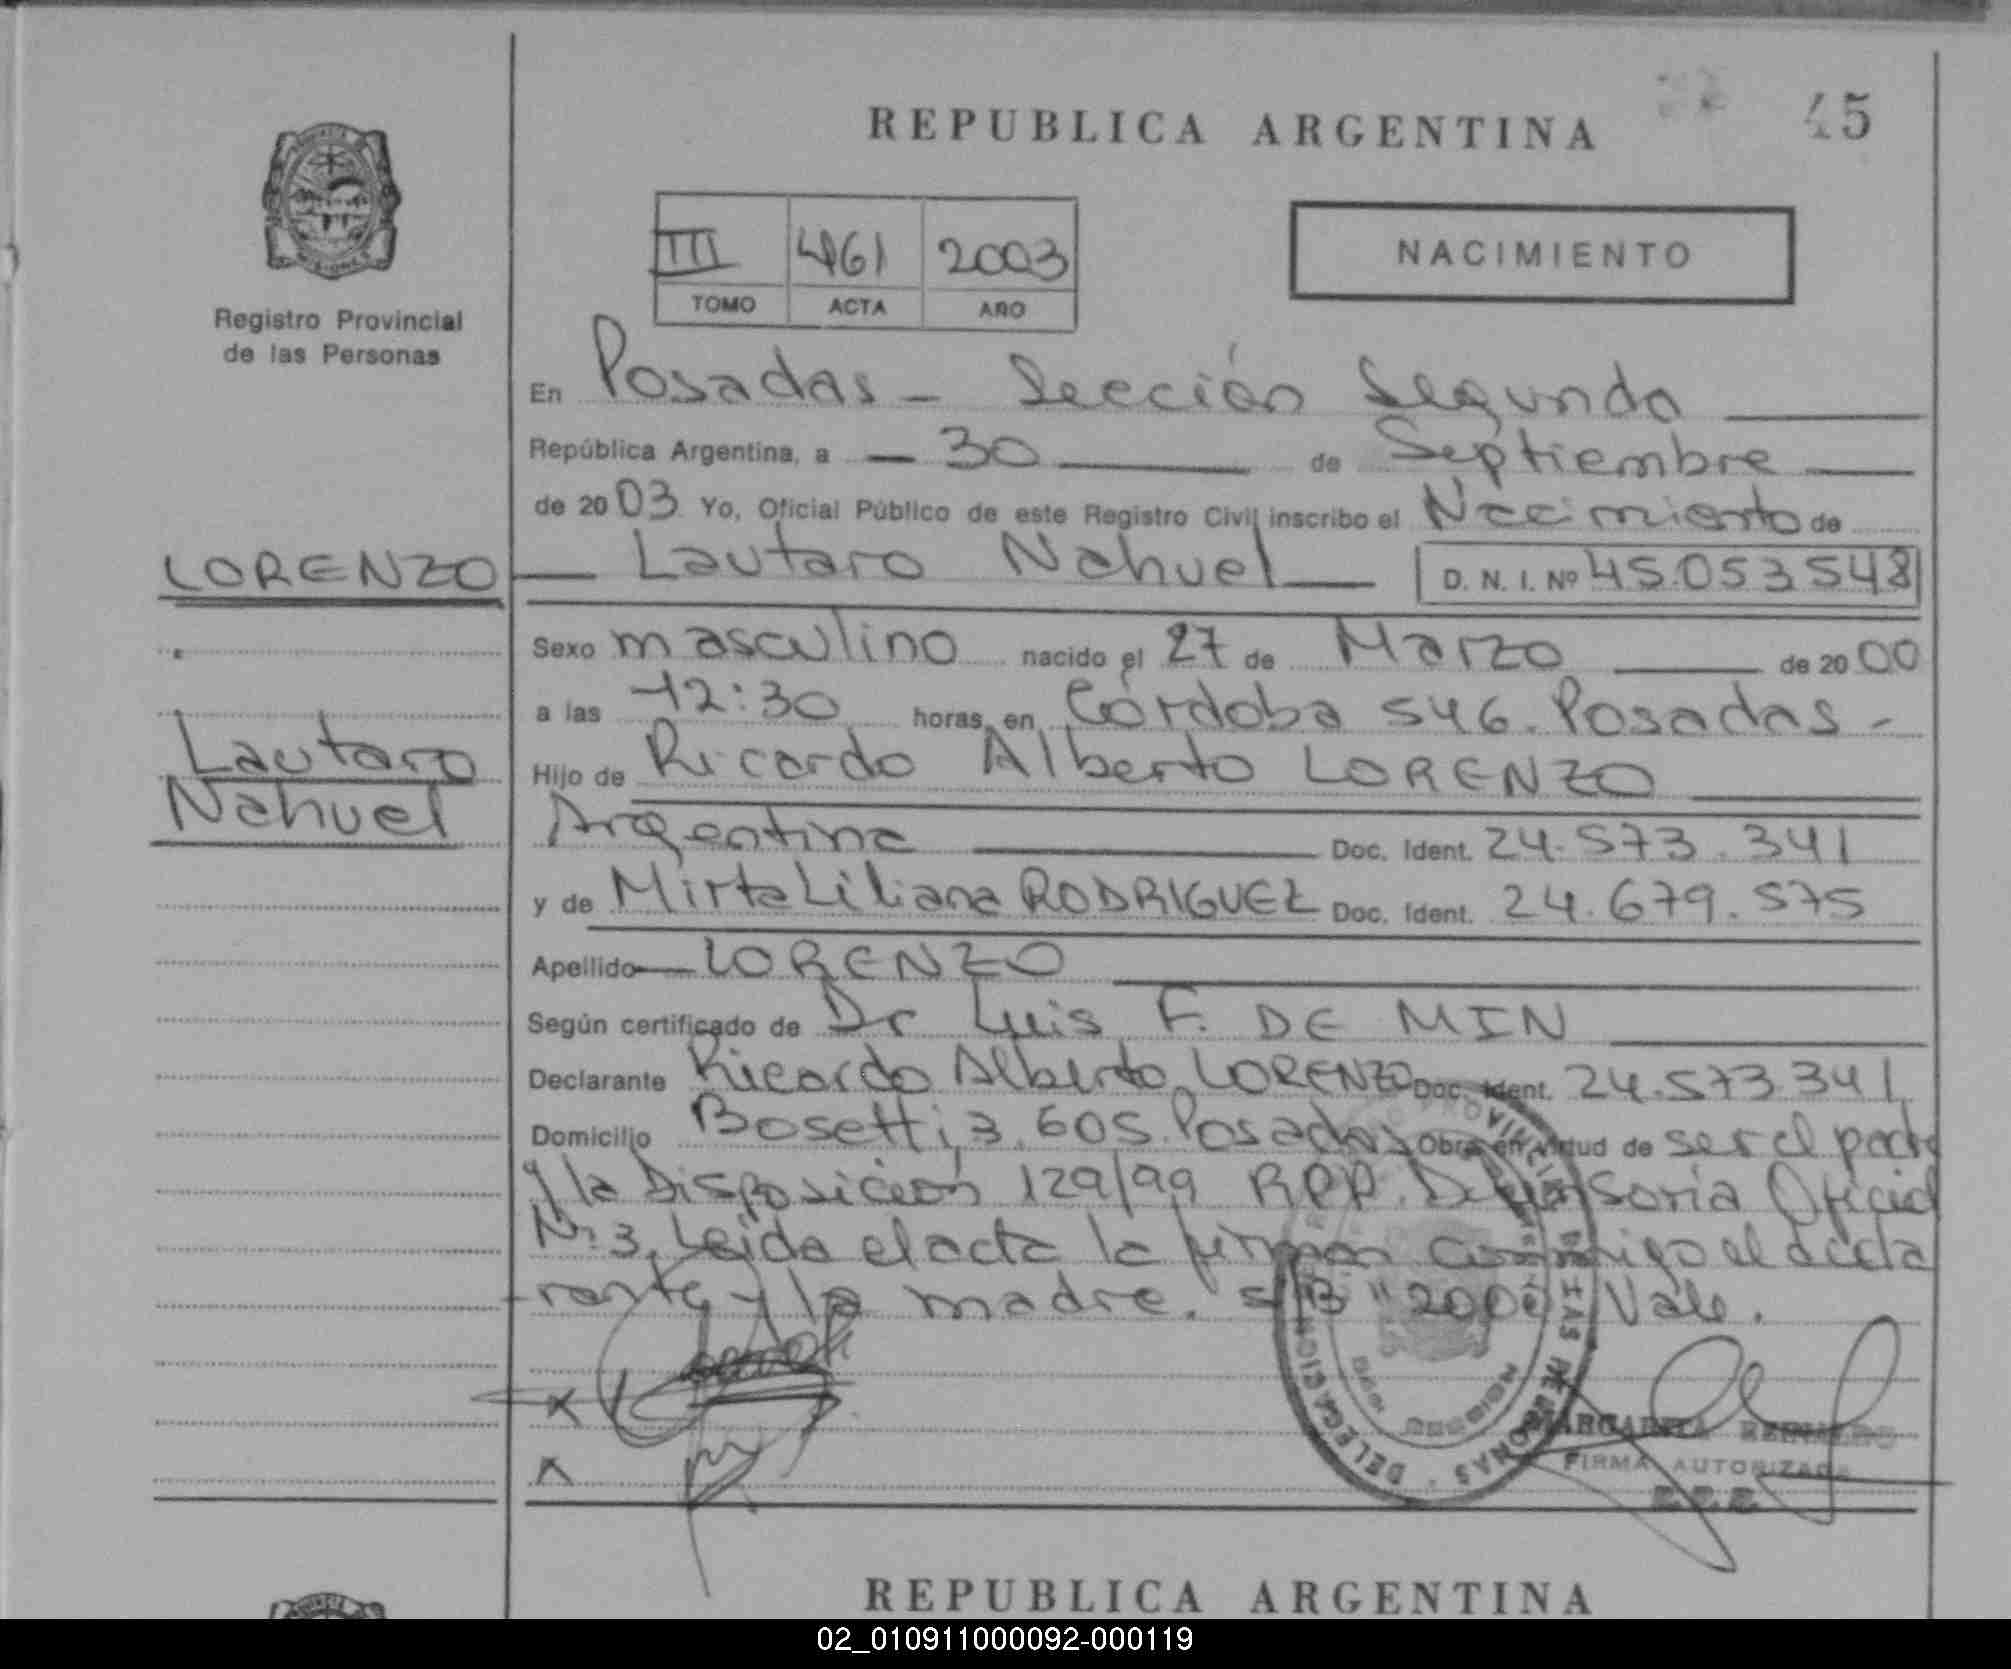 REPUBLICA ARGENTINA
45
MISIONES
Registro Provincial
de las Personas
III 461 2003
TOMO ACTA AÑO
NACIMIENTO
En Posadas - Sección Segunda
República Argentina, a 30 de Septiembre
de 2003 Yo, Oficial Público de este Registro Civil inscribo el Nacimiento de
LORENZO
Lautaro Nahuel D. N. I. Nº 45.053548
Sexo masculino nacido el 27 de Marzo de 2000
a las 12:30 horas, en Córdoba 546. Posadas -
Lautaro
Nahuel
Hijo de Ricardo Alberto LORENZO
Argentina Doc. Ident. 24.573.341
y de Mirta Liliana RODRIGUEZ Doc. Ident. 24.679.575
Apellido LORENZO
Según certificado de Dr Luis F. DE MIN
Declarante Ricardo Alberto LORENZO Doc. Ident. 24.573.341
Domicilio Bosetti 3.605. Posadas Obra en virtud de ser el padre
y la Disposición 129/99 RPP. Defensoría Oficial
Nº 3. Leída el acta la firman conmigo el decla
rante y la madre. S/B "2000" Vale.
DELEGACION PROVINCIAL DE LAS PERSONAS
MISIONES
FIRMA AUTORIZADA
REPUBLICA ARGENTINA
02_010911000092-000119